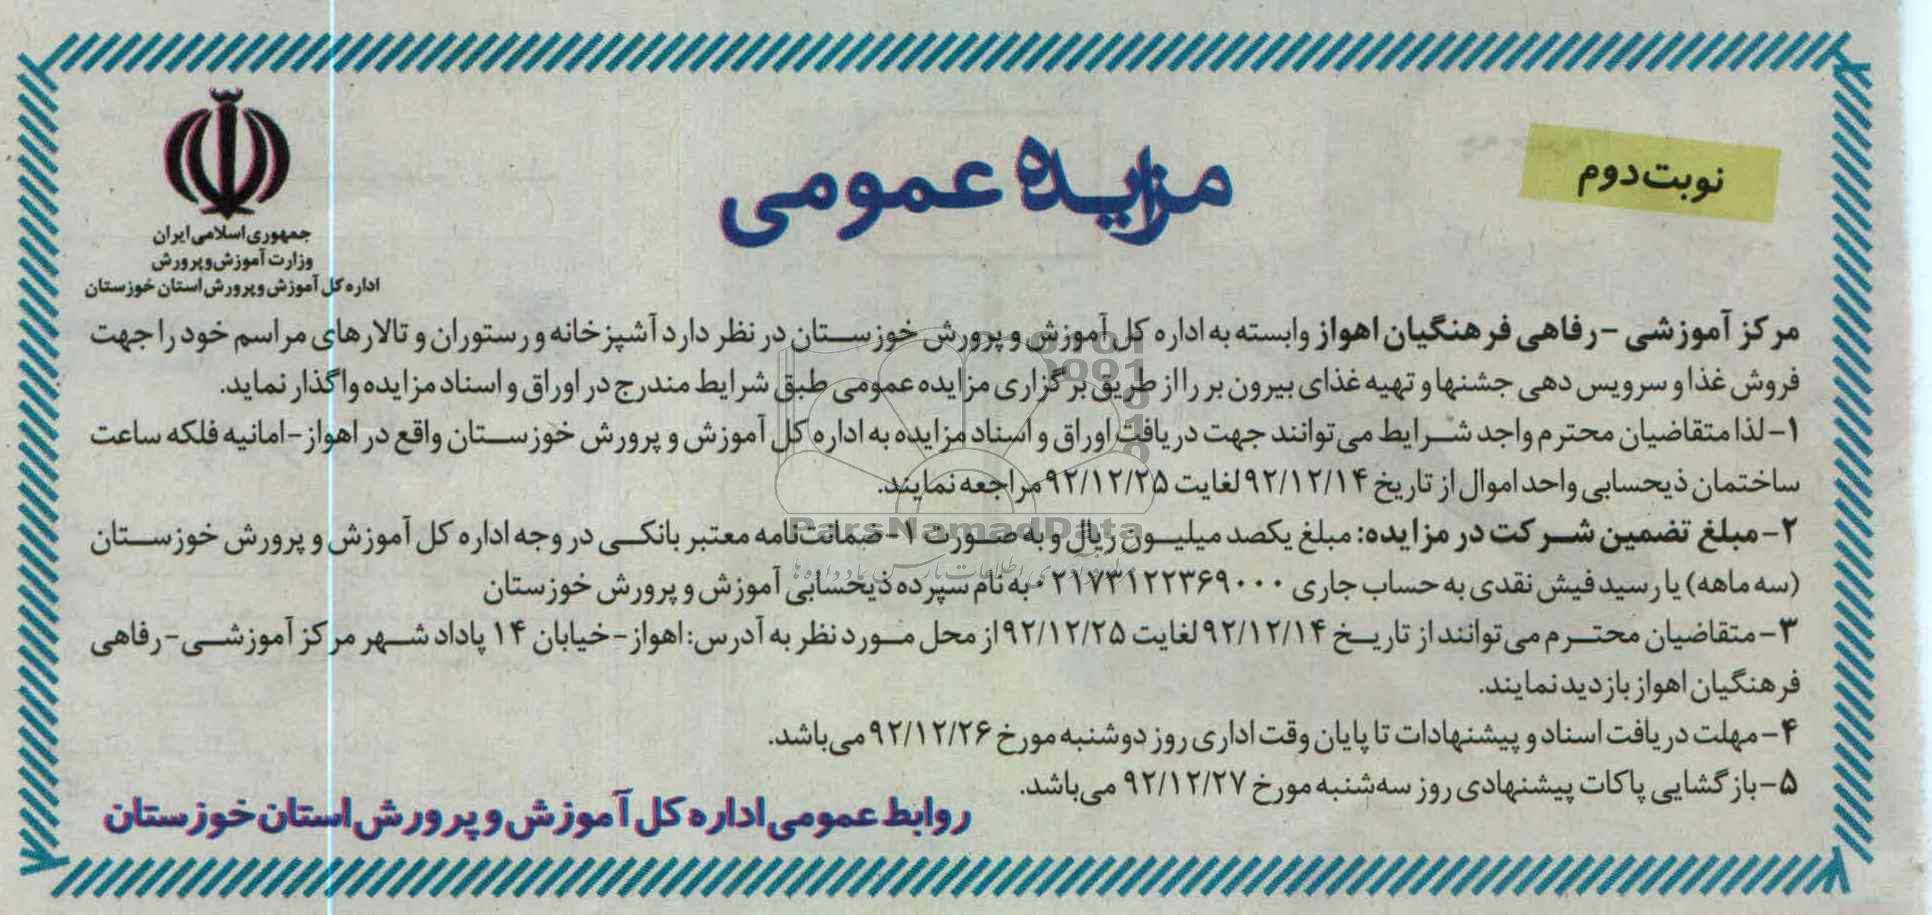 نوبت دوم
مزایده عمومی
جمهوری اسلامی ایران
وزارت آموزش و پرورش
اداره کل آموزش و پرورش استان خوزستان
مرکز آموزشی - رفاهی فرهنگیان اهواز وابسته به اداره کل آموزش و پرورش خوزستان در نظر دارد آشپزخانه و رستوران و تالارهای مراسم خود را جهت
فروش غذا و سرویس دهی جشنها و تهیه غذای بیرون بر را از طریق برگزاری مزایده عمومی طبق شرایط مندرج در اوراق و اسناد مزایده واگذار نماید.
۱- لذا متقاضیان محترم واجد شرایط می‌توانند جهت دریافت اوراق و اسناد مزایده به اداره کل آموزش و پرورش خوزستان واقع در اهواز - امانیه فلکه ساعت
ساختمان ذیحسابی واحد اموال از تاریخ ۹۲/۱۲/۱۴ لغایت ۹۲/۱۲/۲۵ مراجعه نمایند.
۲- مبلغ تضمین شرکت در مزایده: مبلغ یکصد میلیون ریال و به صورت ۱- ضمانت‌نامه معتبر بانکی در وجه اداره کل آموزش و پرورش خوزستان
(سه ماهه) یا رسید فیش نقدی به حساب جاری ۰۲۱۷۳۱۲۲۳۶۹۰۰۰ به نام سپرده ذیحسابی آموزش و پرورش خوزستان
۳- متقاضیان محترم می‌توانند از تاریخ ۹۲/۱۲/۱۴ لغایت ۹۲/۱۲/۲۵ از محل مورد نظر به آدرس: اهواز - خیابان ۱۴ پاداد شهر مرکز آموزشی - رفاهی
فرهنگیان اهواز بازدید نمایند.
۴- مهلت دریافت اسناد و پیشنهادات تا پایان وقت اداری روز دوشنبه مورخ ۹۲/۱۲/۲۶ می‌باشد.
۵- بازگشایی پاکات پیشنهادی روز سه‌شنبه مورخ ۹۲/۱۲/۲۷ می‌باشد.
روابط عمومی اداره کل آموزش و پرورش استان خوزستان
ParsNamadData